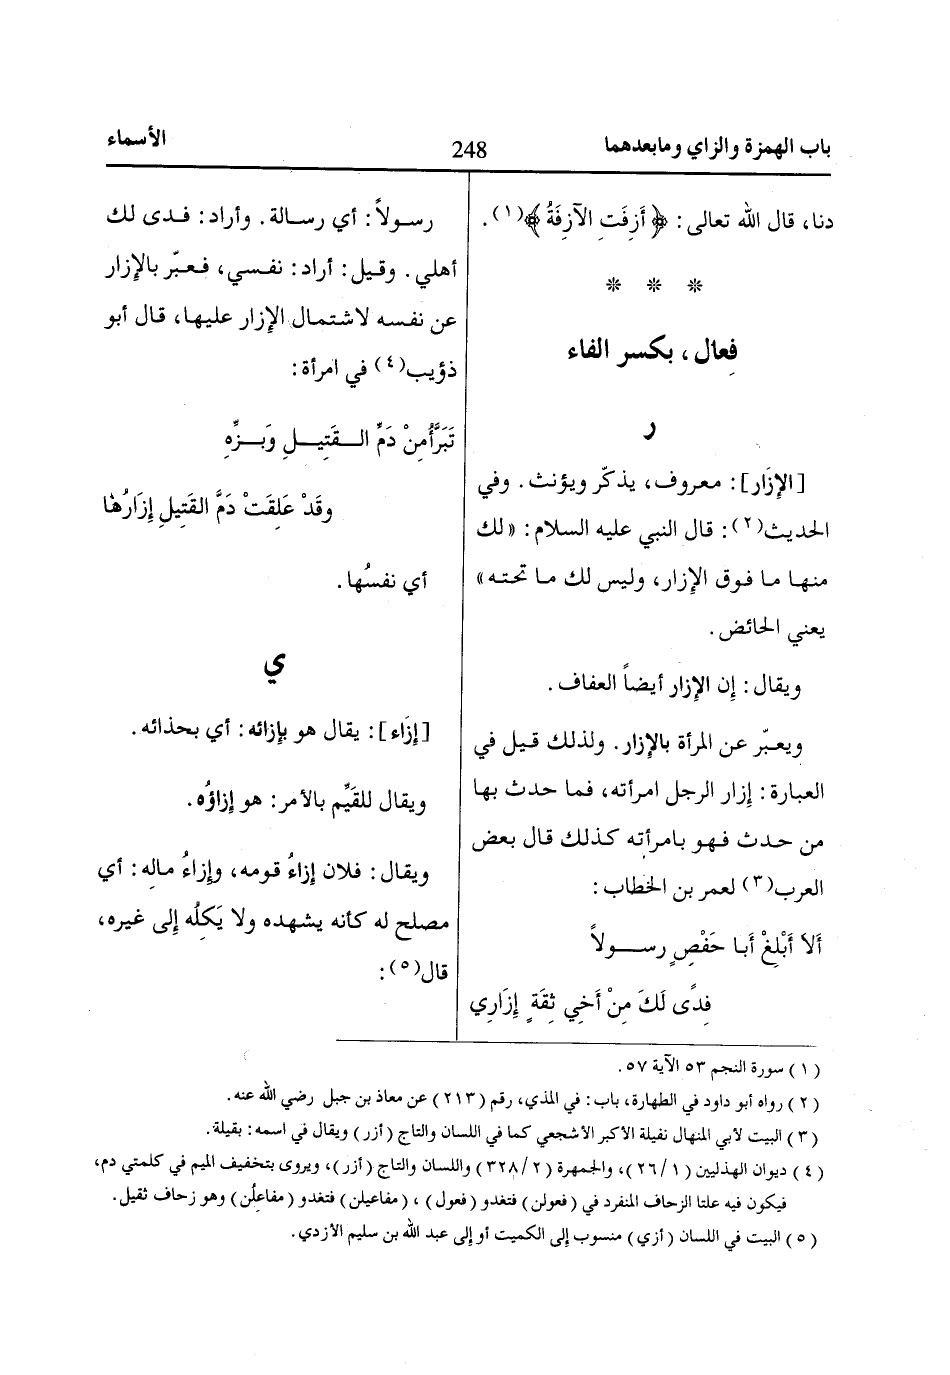 باب الهمزة والزاي ومابعدهما
248
الأسماء
دنا، قال الله تعالى: ﴿أَزِفَتِ الآزِفَةُ﴾(١).
* * *
فِعال، بكسر الفاء
ر
[الإزَار]: معروف، يذكّر ويؤنث. وفي
الحديث(٢): قال النبي عليه السلام: «لك
منها ما فوق الإزار، وليس لك ما تحته»
يعني الحائض.
ويقال: إن الإزار أيضاً العفاف.
ويعبّر عن المرأة بالإزار. ولذلك قيل في
العبارة: إزار الرجل امرأته، فما حدث بها
من حدث فهو بامرأته كذلك قال بعض
العرب(٣) لعمر بن الخطاب:
أَلاَ أَبْلِغْ أَبا حَفْصٍ رســولاً
فِدًى لَكَ مِنْ أَخِي ثِقَةٍ إزَارِي
رسولاً: أي رسالة. وأراد: فدى لك
أهلي. وقيل: أراد: نفسي، فعبّر بالإزار
عن نفسه لاشتمال الإزار عليها، قال أبو
ذؤيب(٤) في امرأة:
تَبَرَّأُ مِنْ دَمِّ القَتِيلِ وَبَزِّهِ
وقَدْ عَلِقَتْ دَمَّ القَتِيلِ إزَارُها
أي نفسُها.
ي
[إزَاء]: يقال هو بإزائه: أي بحذائه.
ويقال للقَيِّم بالأمر: هو إزاؤُه.
ويقال: فلان إزاءُ قومه، وإزاءُ مالِه: أي
مصلح له كأنه يشهده ولا يَكلُه إلى غيره،
قال(٥):
(١) سورة النجم ٥٣ الآية ٥٧.
(٢) رواه أبو داود في الطهارة، باب: في المذي، رقم (٢١٣) عن معاذ بن جبل رضي الله عنه.
(٣) البيت لأبي المنهال نفيلة الأكبر الأشجعي كما في اللسان والتاج (أزر) ويقال في اسمه: بقيلة.
(٤) ديوان الهذليين (١/٢٦)، والجمهرة (٢/٣٢٨) واللسان والتاج (أزر)، ويروى بتخفيف الميم في كلمتي دم،
فيكون فيه علتا الزحاف المنفرد في (فعولن) فتغدو (فعول) ، (مفاعيلن) فتغدو (مفاعلُن) وهو زحاف ثقيل.
(٥) البيت في اللسان (أزي) منسوب إلى الكميت أو إلى عبد الله بن سليم الأزدي.